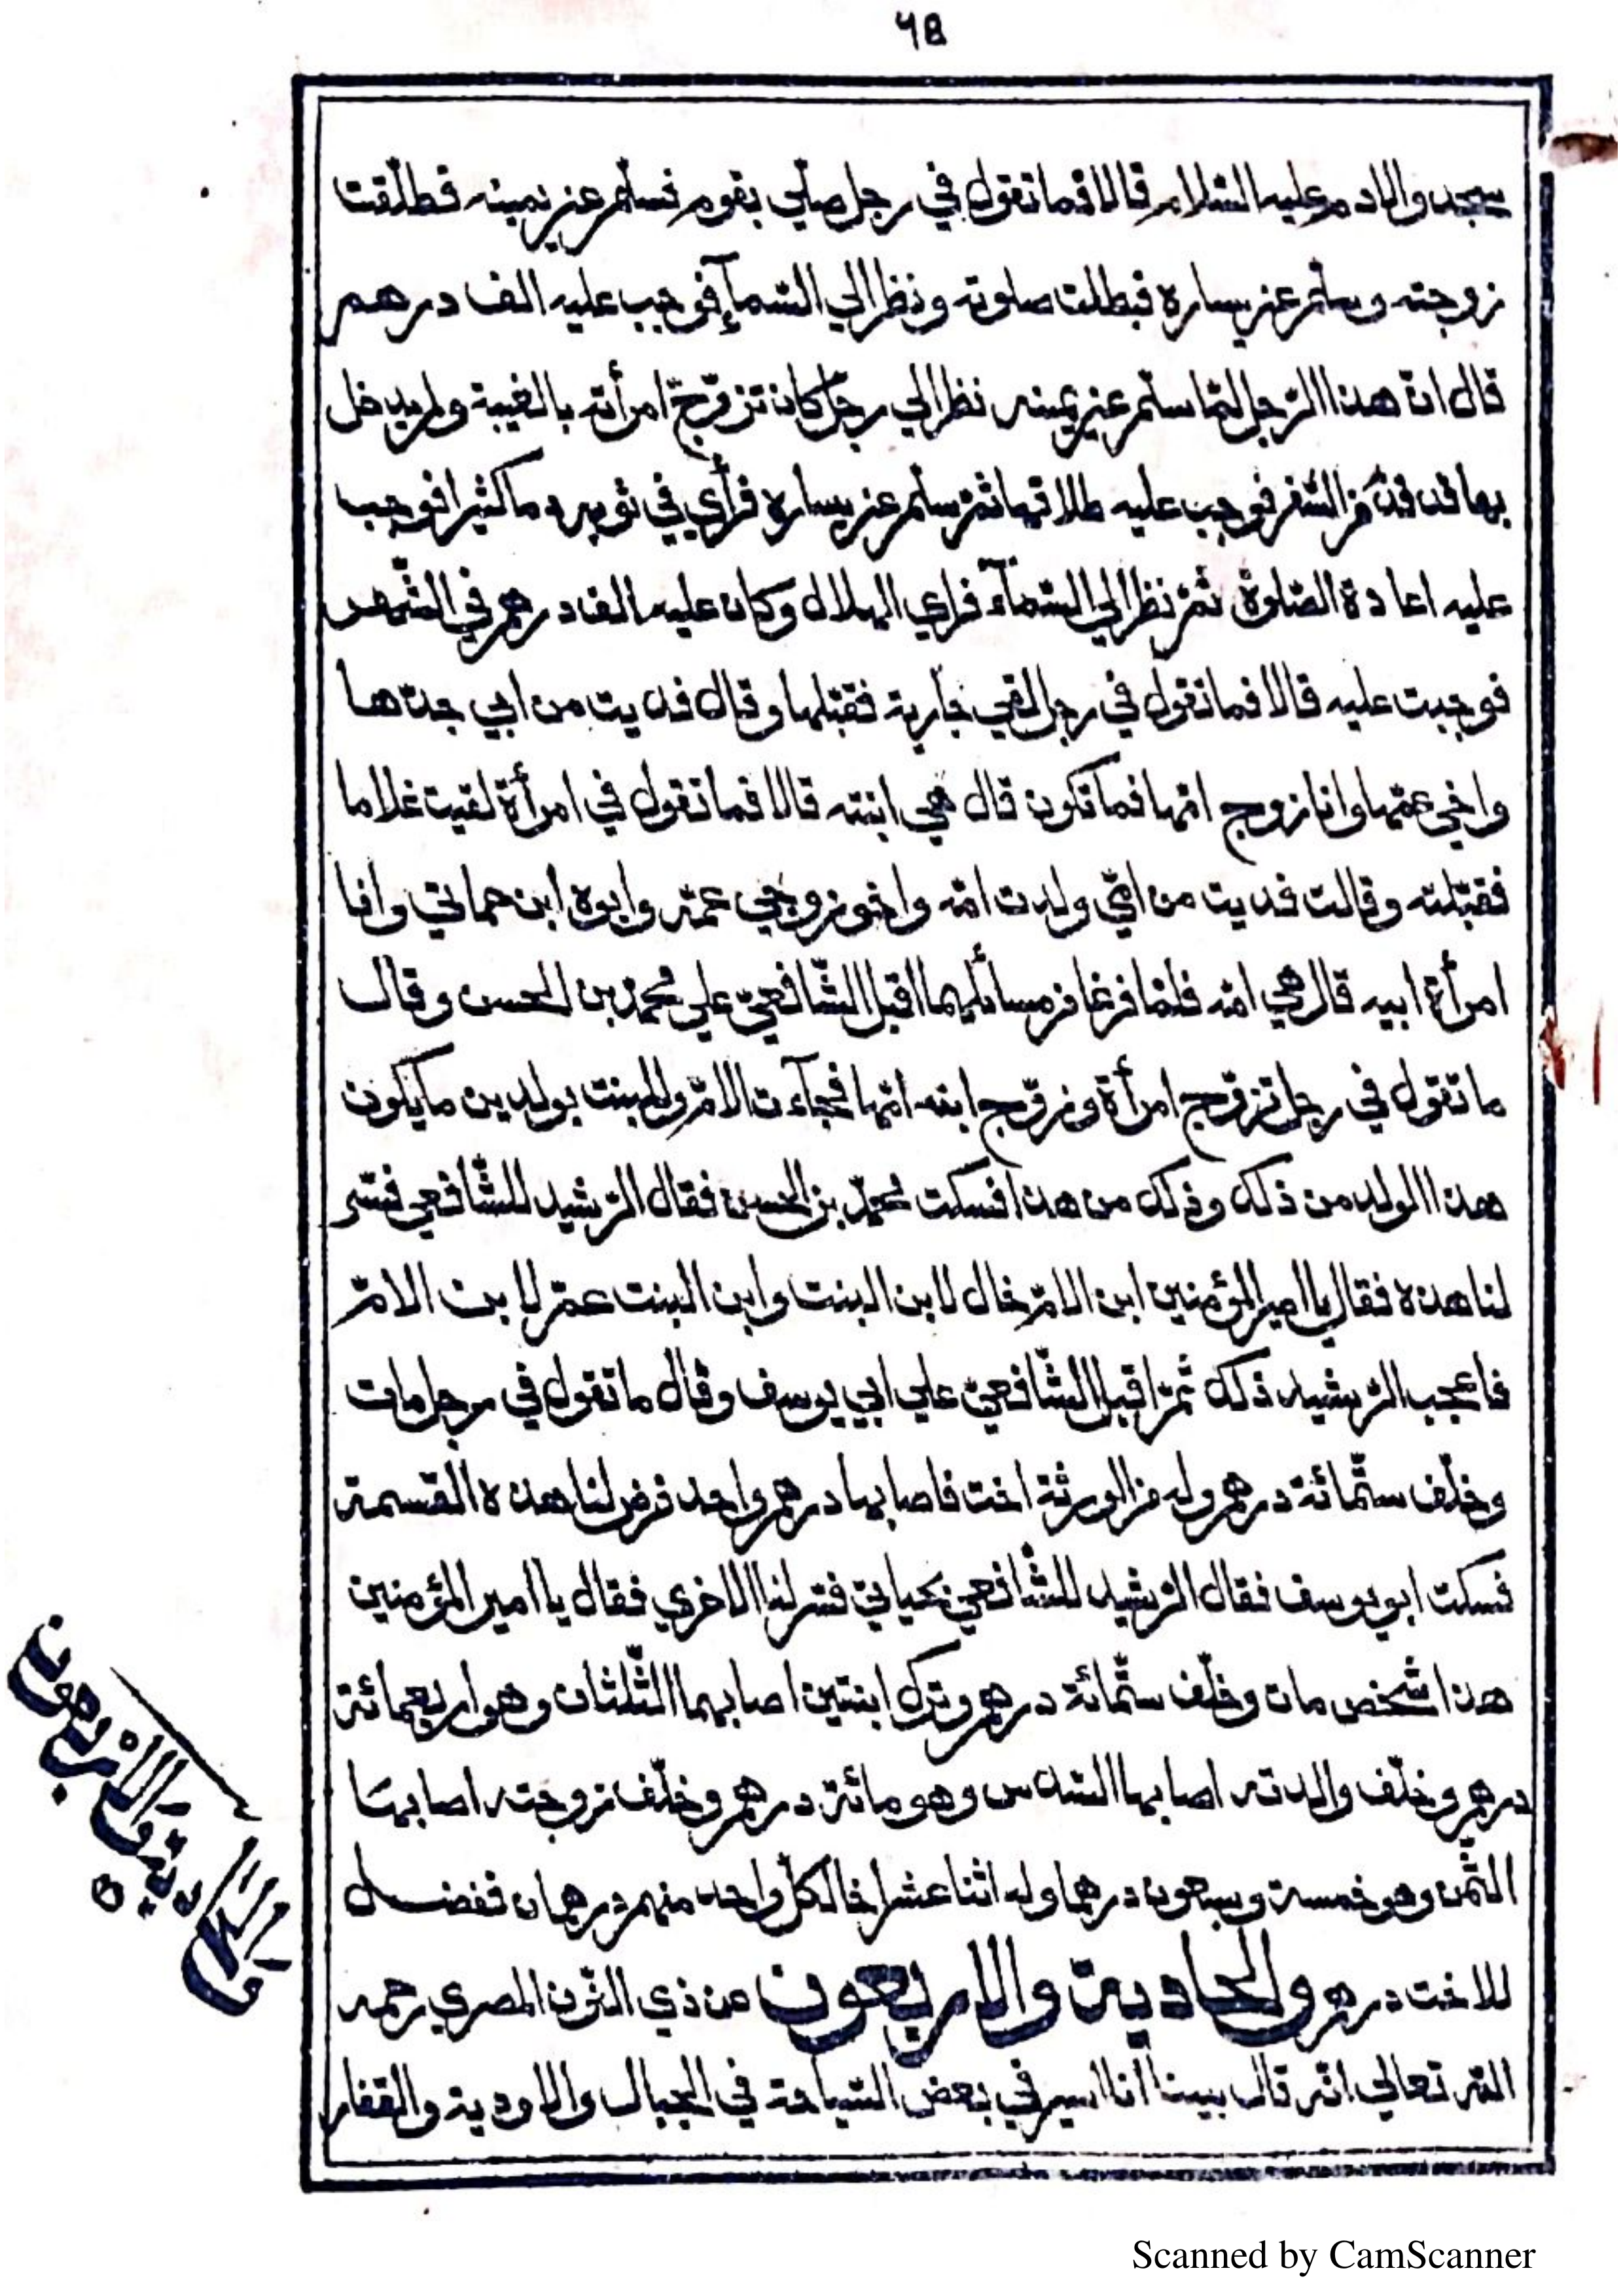 ٦٥
سجد والادم عليه السّلام قالا فما تقول في رجل صلّي بقوم فسلّم عن يمينه فطلّقت
زوجته وسلّم عن يساره فبطلت صلوته ونظر الي السّمآء فوجب عليه الف درهم
قال انّ هذا الرّجل لمّا سلّم عن يمينه نظر الي رجل كان تزوّج امرأته بالغيبة ولم يدخل
بها قد قدم من السّفر فوجب عليه طلاقها ثمّ سلّم عن يساره فرأي في ثوبه دما كثيرا فوجب
عليه اعادة الصّلوة ثمّ نظر الي السّمآء فراي الهلال وكان عليه الف درهم في الشّهر
فوجبت عليه قالا فما تقول في رجل لقي جارية فقبّلها وقال فديت من ابي جدّها
واخي عمّها وانا زوج امّها فما تكون قال هي ابنته قالا فما تقول في امرأة لقيت غلاما
فقبّلته وقالت فديت من امّي ولدت امّه واخو زوجي عمّه وابوه ابن حماتي وانا
امرأة ابيه قال هي امّه فلمّا فرغا من مسائلهما اقبل الشّافعيّ علي محمّد بن الحسن وقال
ما تقول في رجل تزوّج امرأة وزوّج ابنه امّها فجآءت الامّ والبنت بولدين ما يكون
هذا الولد من ذلك وذلك من هذا فسكت محمّد بن الحسن فقال الرّشيد للشّافعي فسّر
لنا هذه فقال يا امير المؤمنين ابن الامّ خال لابن البنت وابن البنت عمّ لابن الامّ
فاعجب الرّشيد ذلك ثمّ اقبل الشّافعيّ علي ابي يوسف وقال ما تقول في رجل مات
وخلّف ستّمائة درهم وله من الورثة اخت فاصابها درهم واحد فرض لنا هذه القسمة
فسكت ابو يوسف فقال الرّشيد للشّافعي بحياتي فسّر لنا الاخري فقال يا امير المؤمنين
هذا شخص مات وخلّف ستّمائة درهم وترك ابنتين اصابهما الثّلثان وهو اربعمائة
درهم وخلّف والدته اصابها السّدس وهو مائة درهم وخلّف زوجته اصابها
الثّمن وهو خمسة وسبعون درهما وله اثنا عشر اخا لكلّ واحد منهم درهمان ففضل
للاخت درهم والحادية والاربعون عن ذي النّون المصري رحمه
اللّه تعالي انّه قال بينا أنا اسير في بعض السّياحة في الجبال والاودية والقفار
والحادية والاربعون
Scanned by CamScanner